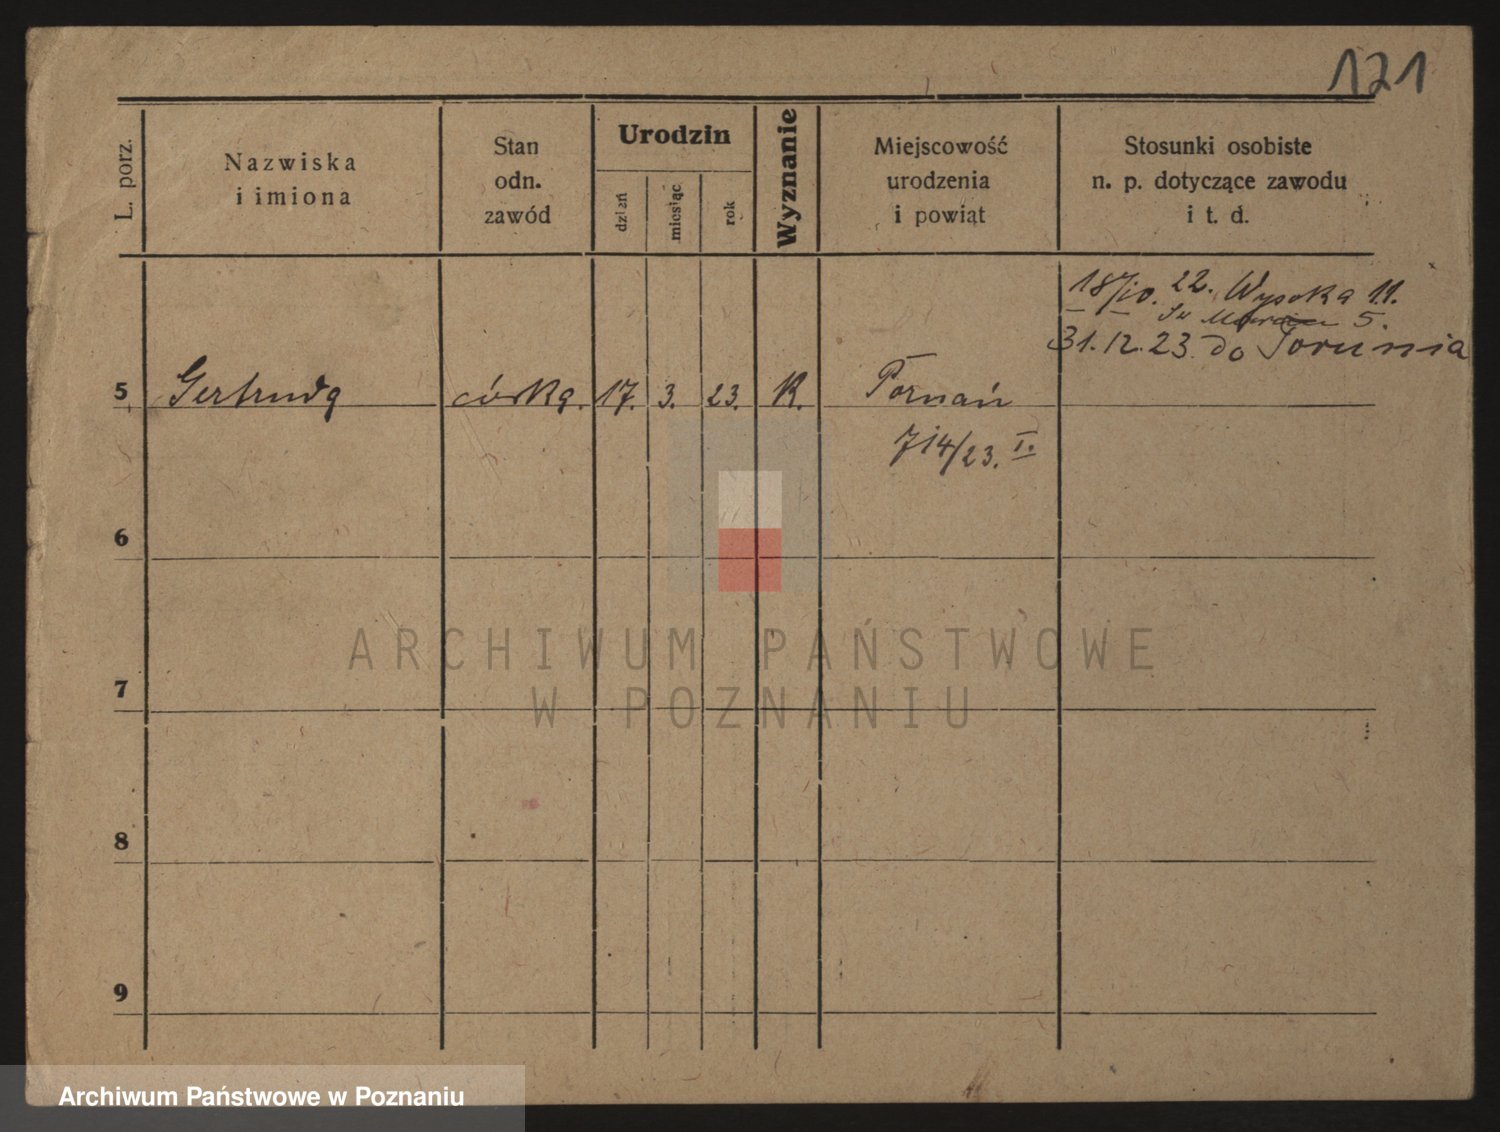 121
L. porz.
Nazwiska
i imiona
Stan
odn.
zawód
Urodzin
dzień
miesiąc
rok
Wyznanie
Miejscowość
urodzenia
i powiat
Stosunki osobiste
n. p. dotyczące zawodu
i t. d.
22. Wysoka 11.
Św Marcin 5.
31.12.23. do Torunia
5 Gertruda córka. 17. 3. 23. K. Poznań
714/23. I.
6
7
8
9
ARCHIWUM PAŃSTWOWE
W POZNANIU
Archiwum Państwowe w Poznaniu